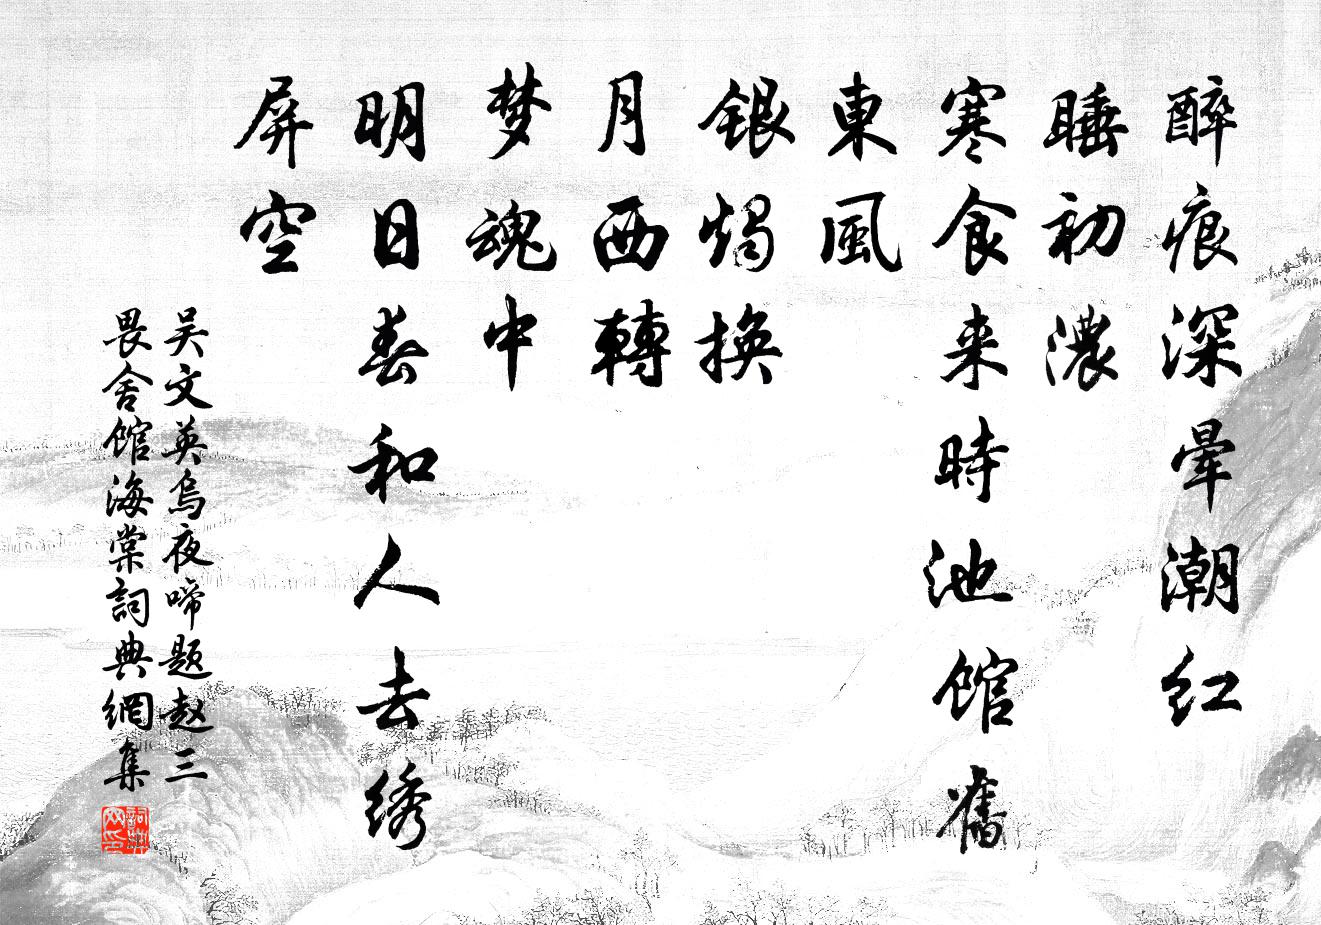 醉痕深暈潮红
睡初濃
寒食来時池馆舊
東風
銀燭换
月西轉
梦魂中
明日春和人去绣
屏空
吴文英烏夜啼题赵三
畏舍馆海棠詞典網集